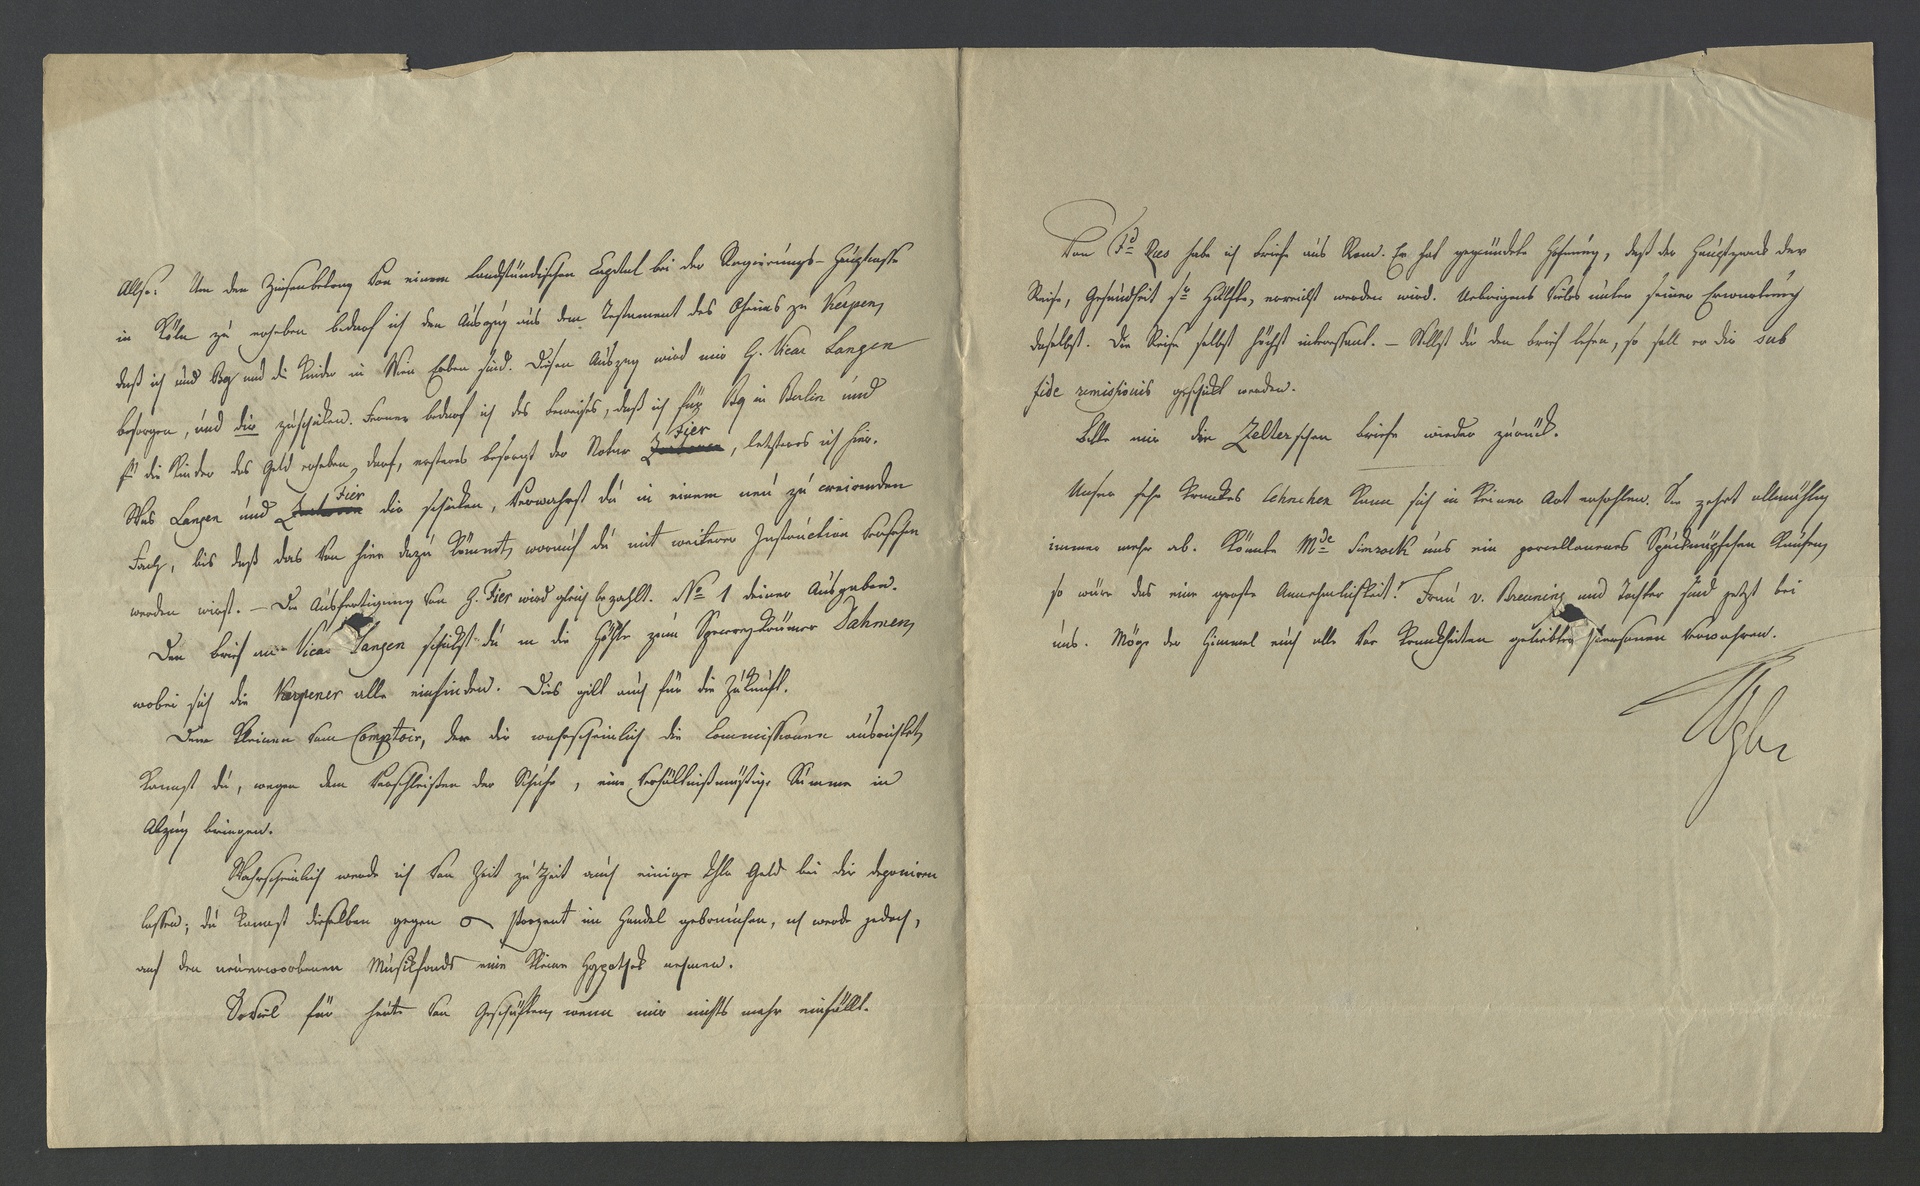 Also! Um den Zinsenbetrag von einem Landständischen Capital bei der Regierungs-Hauptcasse
in Köln zu erheben bedarf ich den Auszug aus dem Testament des Oheims zu Kerpen,
daß ich und Bg und die Kinder in Wien Erben sind. Diesen Auszug wird mir H. Vicar Langen
besorgen, und dir zuschicken. Ferner bedarf ich des Beweises, daß ich für Bg in Berlin und
für die Kinder das Geld erheben darf, ersteres besorgt der Notar Fier, letzteres ich hier.
Was Langen und Fier dir schicken, verwahrst du in einem neu zu creirenden
Fach, bis daß das von hier dazu kömmt, worauf du mit weiterer Instruction versehen
werden wirst. – Die Ausfertigung von H. Fier wird gleich bezahlt. No 1 deiner Ausgaben.
Den Brief an Vicar Langen schickst du in die Höhle zum Spezereykrämer Dahmen,
wobei sich die Kerpener alle einfinden. Dies gilt auch für die Zukunft.
Dem Kleinen vom Comptoir, der dir wahrscheinlich die Commissionen ausrichtet,
kannst du, wegen dem Verschleißen der Schuhe, eine verhältnißmäßige Summe in
Abzug bringen.
Wahrscheinlich werde ich von Zeit zu Zeit auch einige Thlr Geld bei dir deponiren
lassen; du kannst dieselben gegen Prozent im Handel gebrauchen, ich werde jedoch,
auf den neuerworbenen Musikfonds eine kleine Hypothek nehmen.
Soviel für heute von Geschäften, wenn mir nichts mehr einfällt.
Von Fd Ries habe ich Briefe aus Rom. Er hat gegründete Hofnung, daß der Hauptzweck der
Reise, Gesundheit sr Hälfte, erreicht werden wird. Uebrigens Vieles unter seiner Erwartung
daselbst. Die Reise selbst höchst interessant. – Willst du den Brief lesen, so soll er dir sub
fide remissionis geschickt werden.
Bitte mir die Zelterschen Briefe wieder zurück.
Unser sehr krankes Lehnchen kann sich in keiner Art erholen. Sie zehrt allmählig
immer mehr ab. Könnte Mde Simrock uns ein porcellanenes Spucknäpfchen kaufen,
so wäre das eine große Annehmlichkeit! Frau v. Breuning und Tochter sind jetzt bei
uns. Möge der Himmel euch alle vor Krankheiten geliebter Personen bewahren.
Wglr